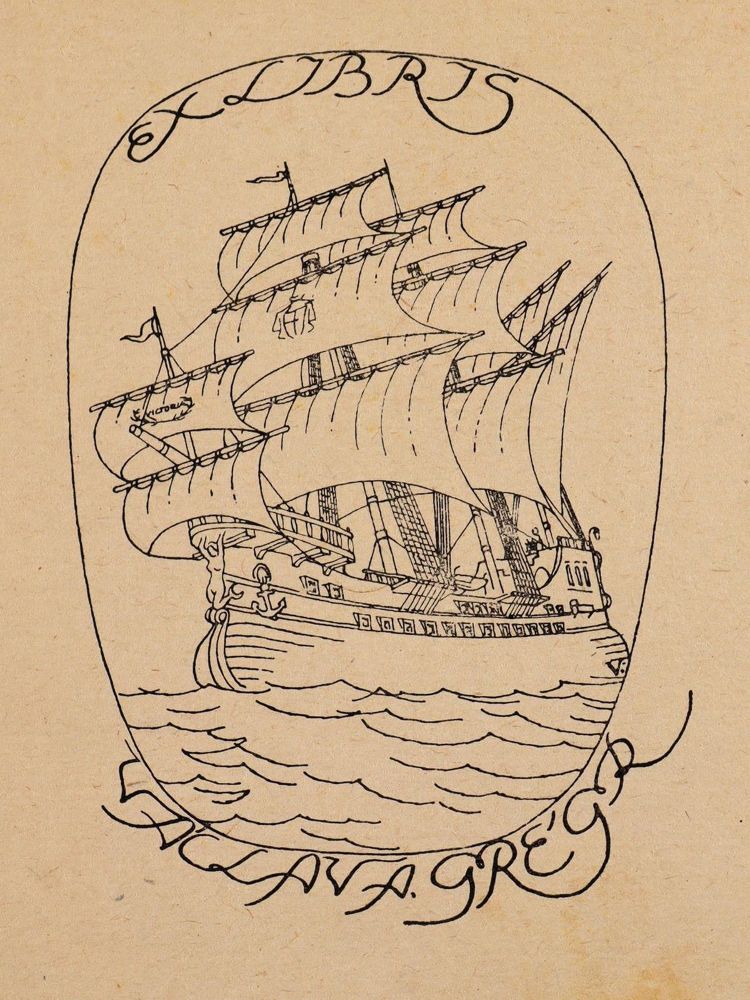 EX LIBRIS
VICTORIA
V.
VÁCLAV A. GRÉGR